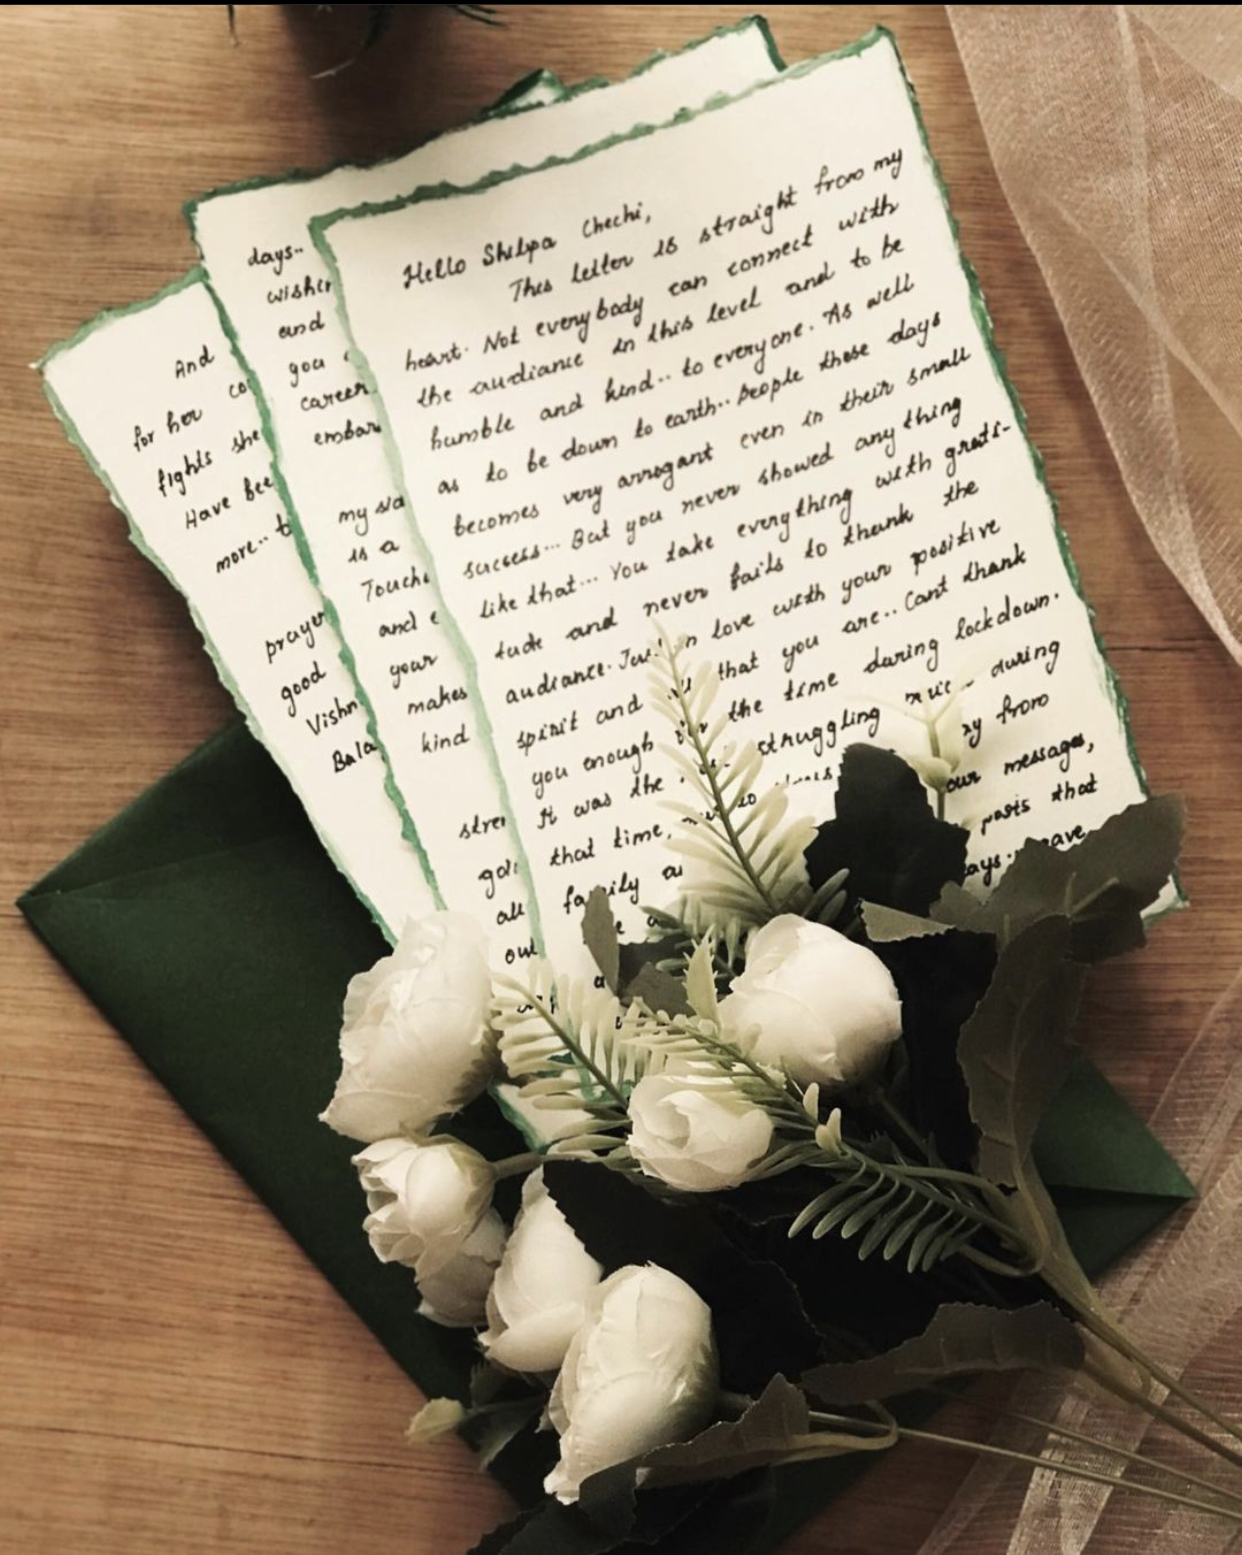 Hello Shilpa Chechi,
This letter is straight from my
heart. Not everybody can connect with
the audiance in this level and to be
humble and kind.. to everyone. As well
as to be down to earth.. people those days
becomes very arrogant even in their small
success... But you never showed any thing
like that... You take everything with grati-
tude and never fails to thank the
audiance. in love with your positive
spirit and that you are.. Cant thank
you enough the time during lockdown.
It was the struggling during
that time, from
family our messages,
posts that
days..
wishin
and
you
career
embar
my sia
is a
Touch
and
your
makes
kind
stren
goi
all
out
And
for her co
fights she
Have bee
more.. t
prayer
good
Vishn
Bala